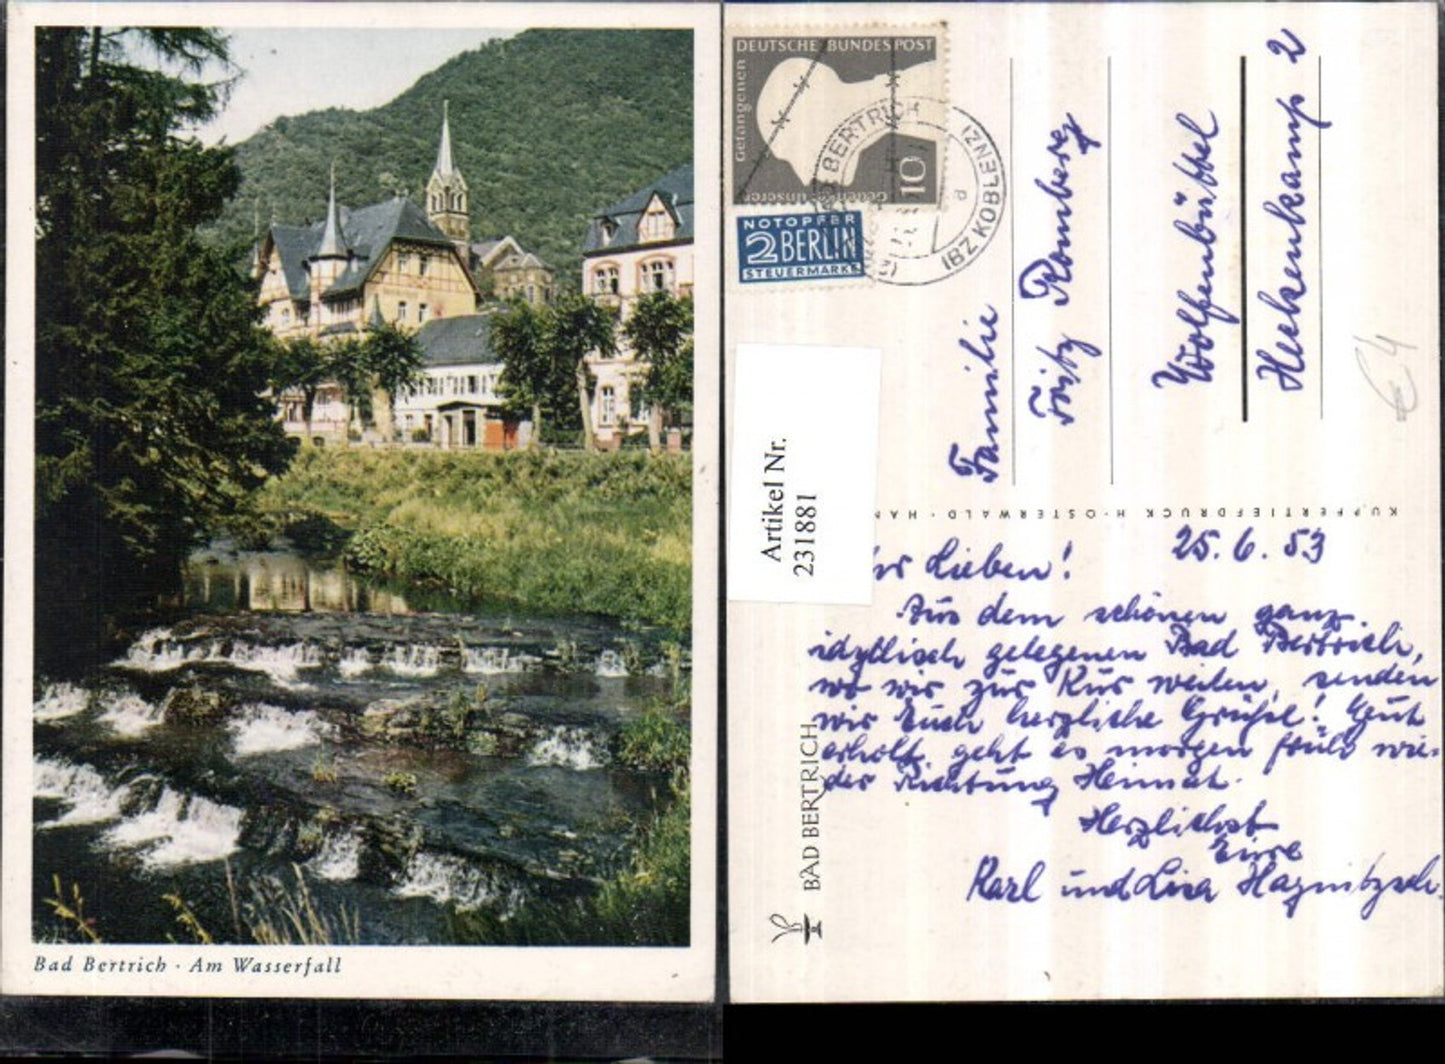 Bad Bertrich · Am Wasserfall
DEUTSCHE BUNDESPOST
Gefangenen
10
NOTOPFER
2 BERLIN
STEUERMARKE
BAD BERTRICH
(BZ KOBLENZ)
Familie
Fritz Romberg
Wolfenbüttel
Herbsenkamp 2
€ 4
Artikel Nr.
231881
KUPFERTIEFDRUCK H·OSTERWALD·HAN
25.6.53
Lieben!
Aus dem schönen ganz
idyllisch gelegenen Bad Bertrich,
wo wir zur Kur weilen, senden
wir Euch herzliche Grüße! Gut
erholt geht es morgen früh wie-
der Richtung Heimat.
Herzlichst
Eure
Karl und Lisa
BAD BERTRICH